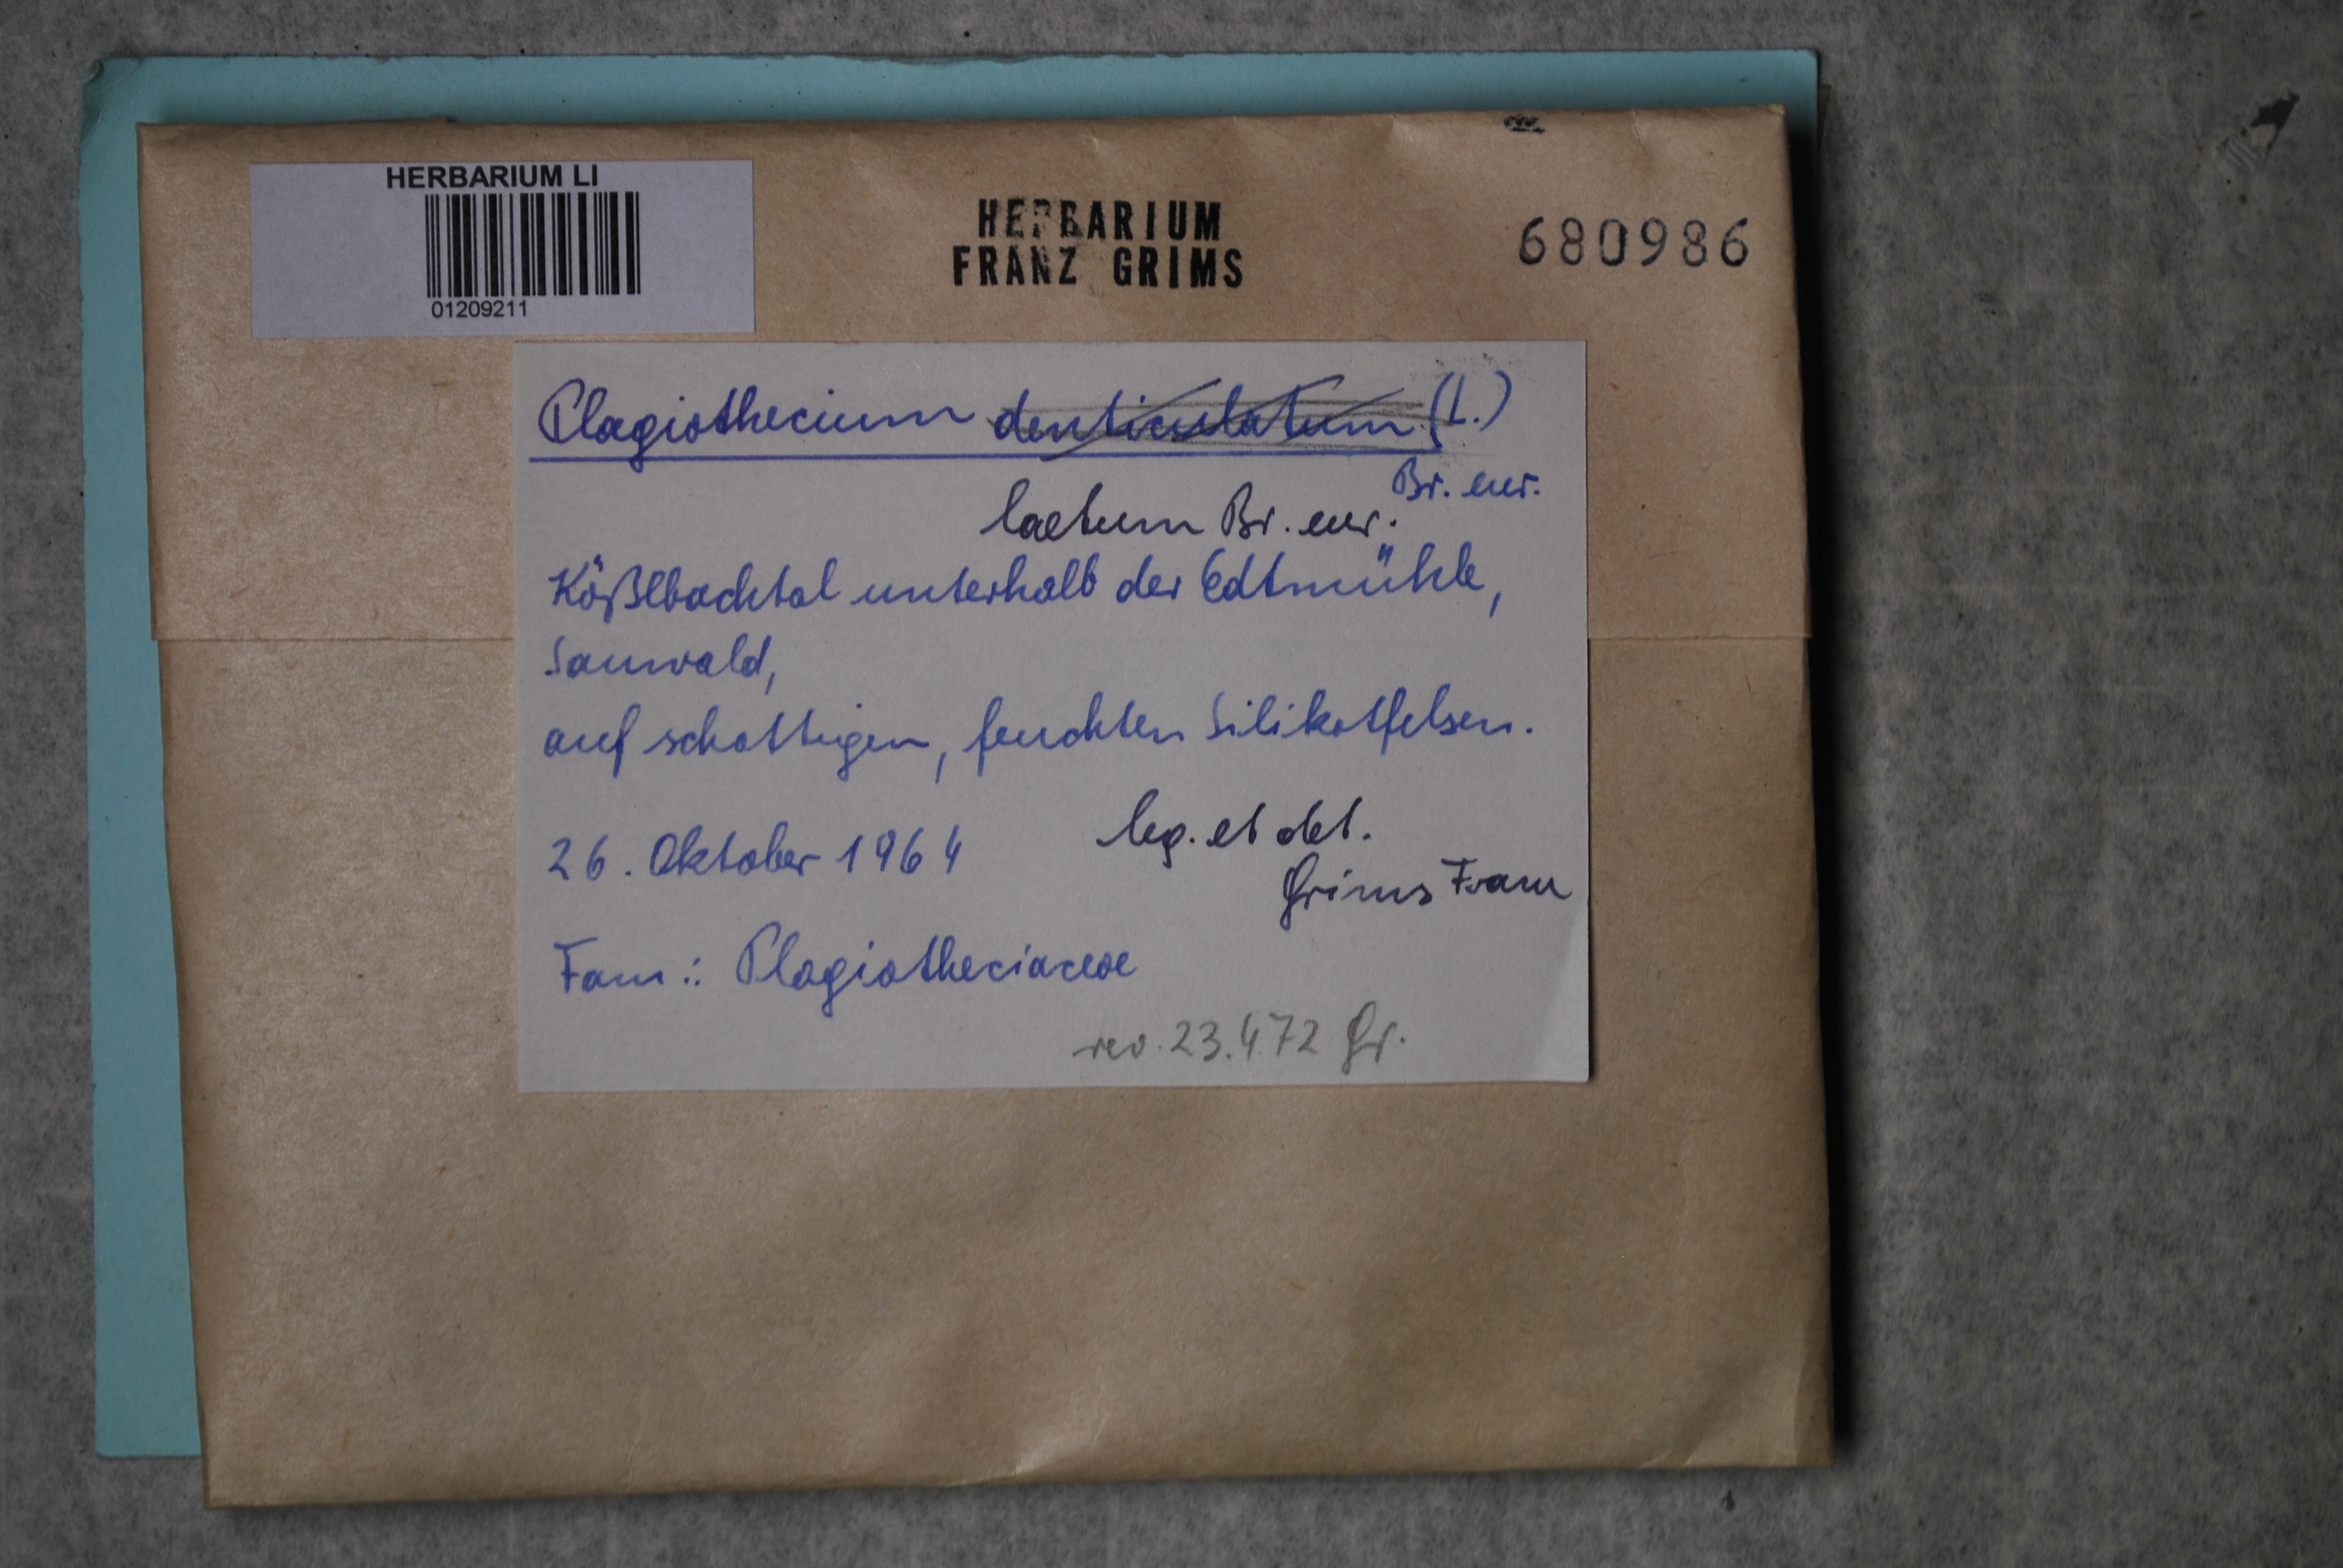 HERBARIUM LI
01209211
HERBARIUM
FRANZ GRIMS
680986
Plagiothecium denticulatum (L.)
Br. eur.
laetum Br. eur.
Kößlbachtal unterhalb der Edtmühle,
Sauwald,
auf schattigen, feuchten Silikatfelsen.
26. Oktober 1964
leg. et det.
Grims Franz
Fam.: Plagiotheciaceae
rev. 23.4.72 Gr.